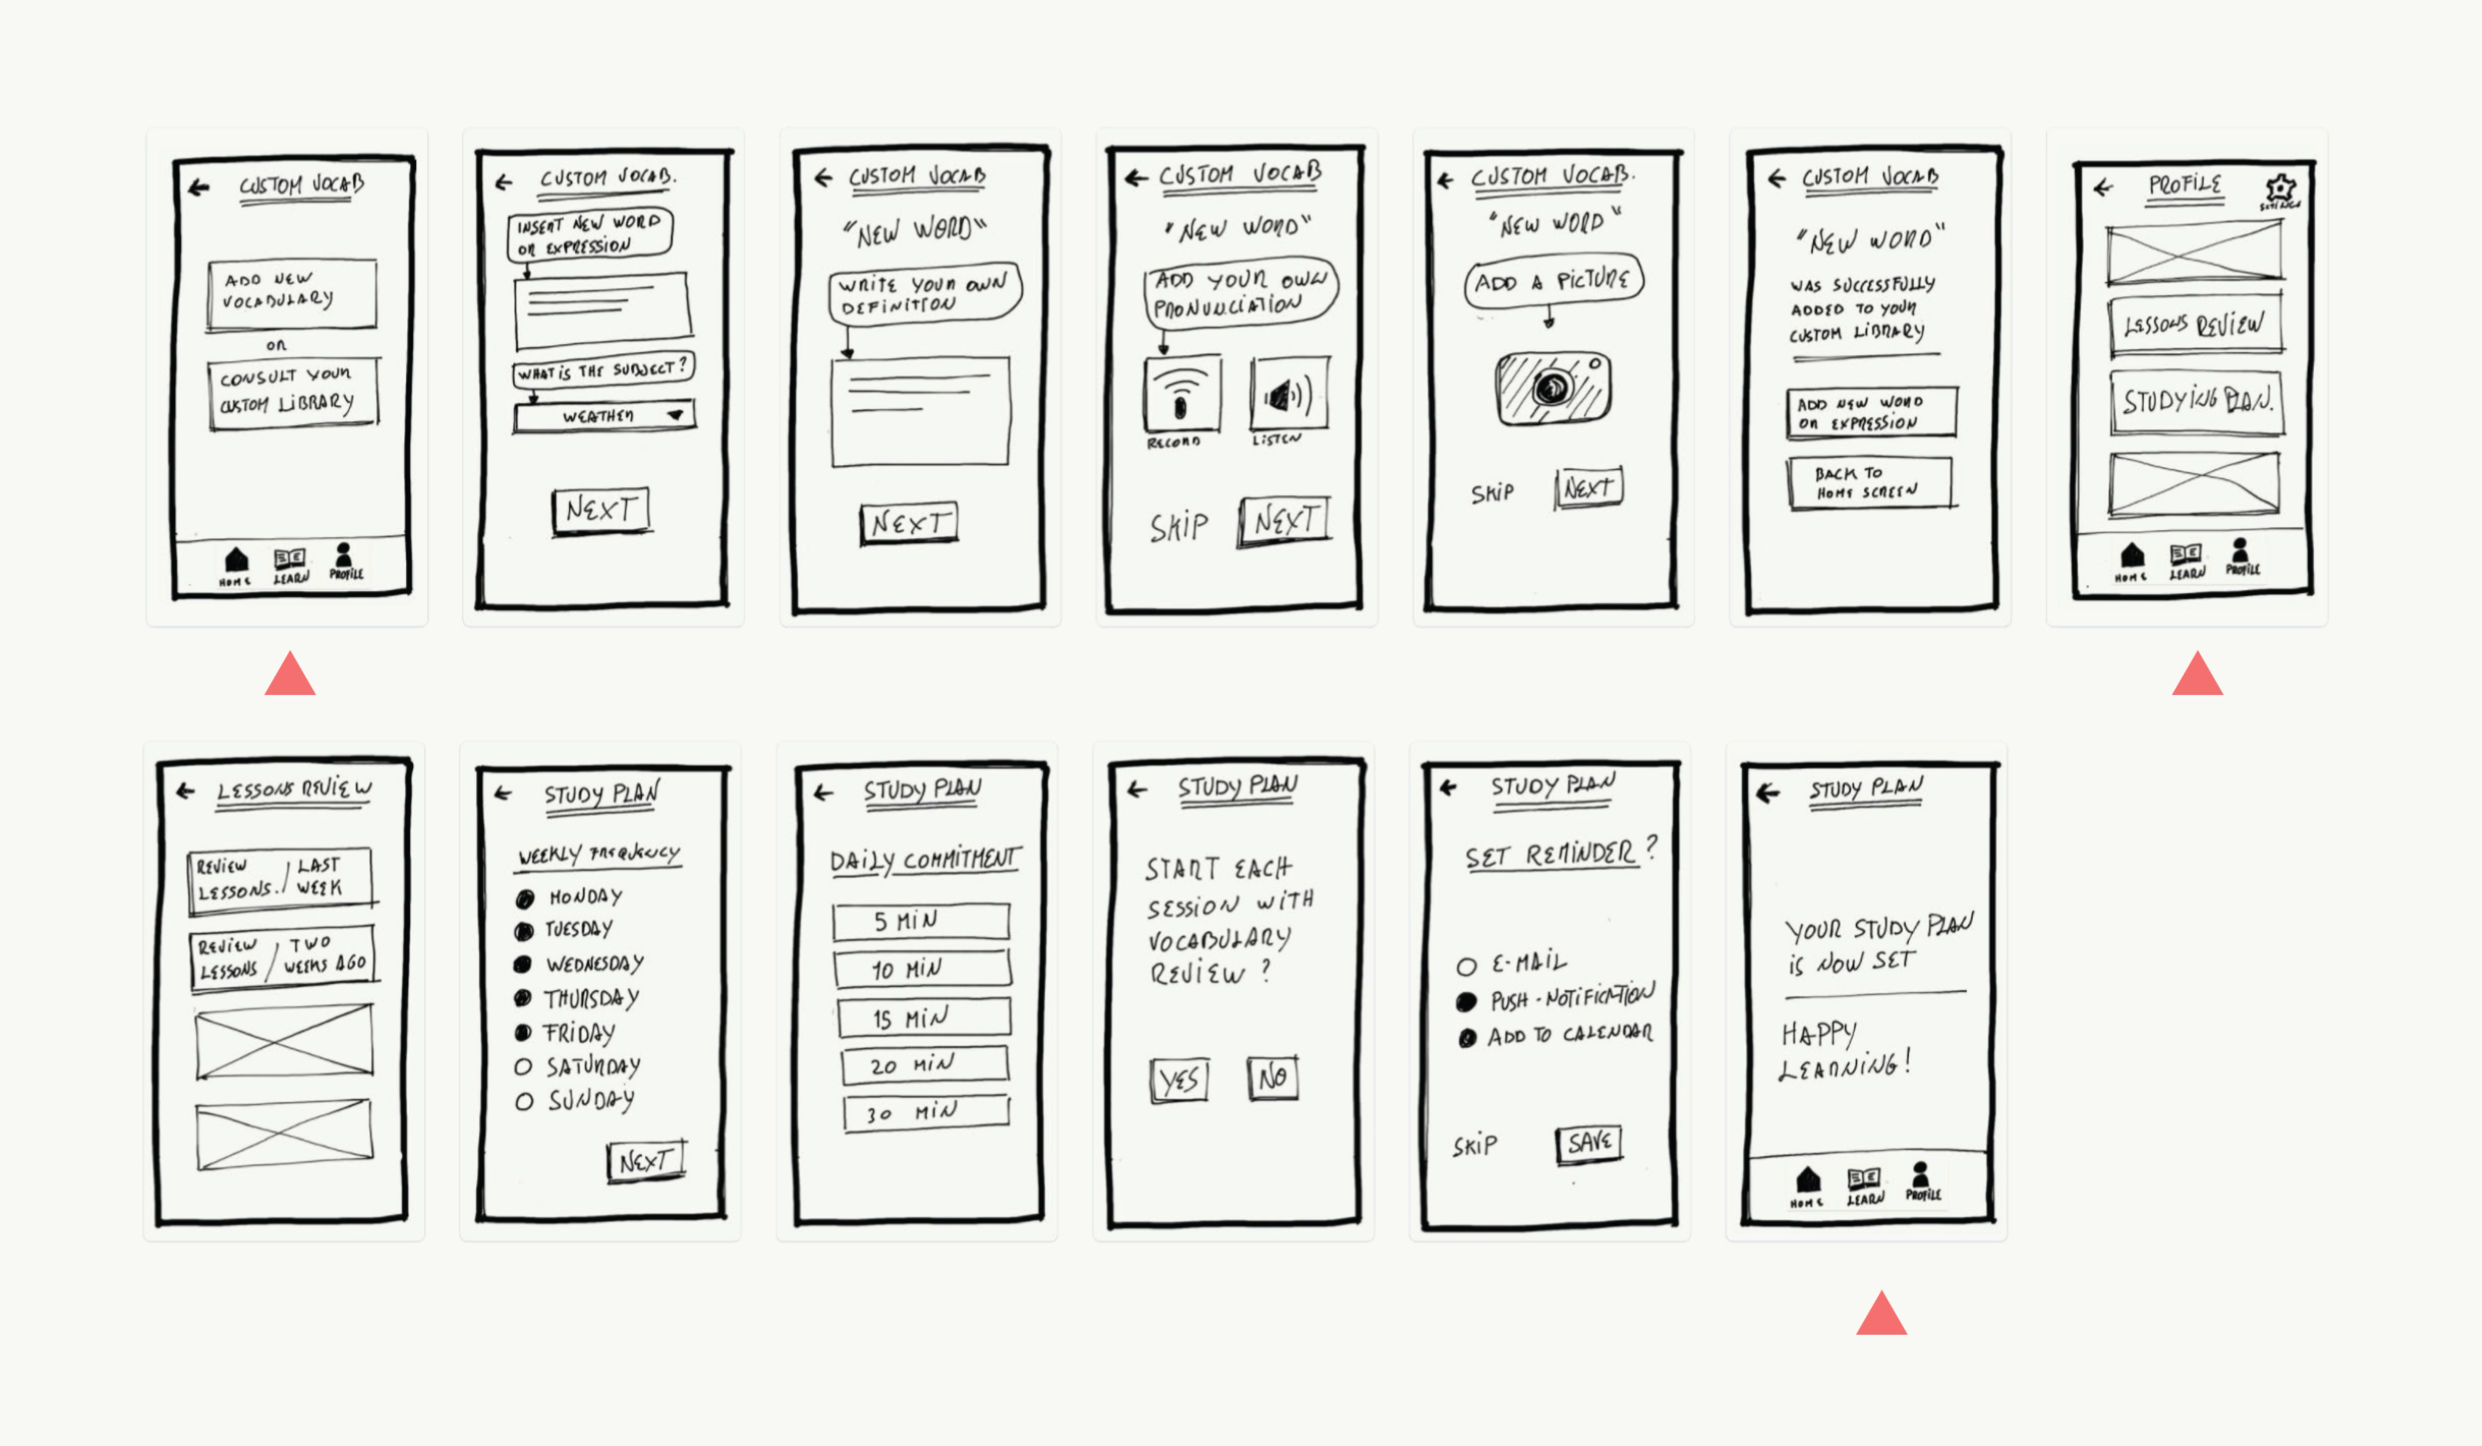 ← CUSTOM VOCAB
ADD NEW
VOCABULARY
OR
CONSULT YOUR
CUSTOM LIBRARY
HOME LEARN PROFILE
← CUSTOM VOCAB.
INSERT NEW WORD
OR EXPRESSION
WHAT IS THE SUBJECT?
WEATHER
NEXT
← CUSTOM VOCAB
"NEW WORD"
WRITE YOUR OWN
DEFINITION
NEXT
← CUSTOM VOCAB
"NEW WORD"
ADD YOUR OWN
PRONUNCIATION
RECORD LISTEN
SKIP NEXT
← CUSTOM VOCAB.
"NEW WORD"
ADD A PICTURE
SKIP NEXT
← CUSTOM VOCAB
"NEW WORD"
WAS SUCCESSFULLY
ADDED TO YOUR
CUSTOM LIBRARY
ADD NEW WORD
OR EXPRESSION
BACK TO
HOME SCREEN
← PROFILE
SETTINGS
LESSONS REVIEW
STUDYING PLAN.
HOME LEARN PROFILE
← LESSONS REVIEW
REVIEW / LAST
LESSONS. WEEK
REVIEW / TWO
LESSONS WEEKS AGO
← STUDY PLAN
WEEKLY FREQUENCY
MONDAY
TUESDAY
WEDNESDAY
THURSDAY
FRIDAY
SATURDAY
SUNDAY
NEXT
← STUDY PLAN
DAILY COMMITMENT
5 MIN
10 MIN
15 MIN
20 MIN
30 MIN
← STUDY PLAN
START EACH
SESSION WITH
VOCABULARY
REVIEW ?
YES NO
← STUDY PLAN
SET REMINDER ?
E-MAIL
PUSH-NOTIFICATION
ADD TO CALENDAR
SKIP SAVE
← STUDY PLAN
YOUR STUDY PLAN
IS NOW SET
HAPPY
LEARNING!
HOME LEARN PROFILE